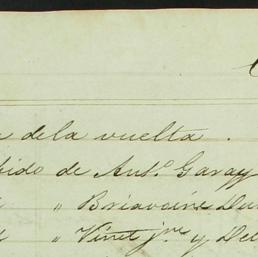 dela vuelta.
bido de Ant.º Garay
" Briavoine Du
" Vinet jne y Del